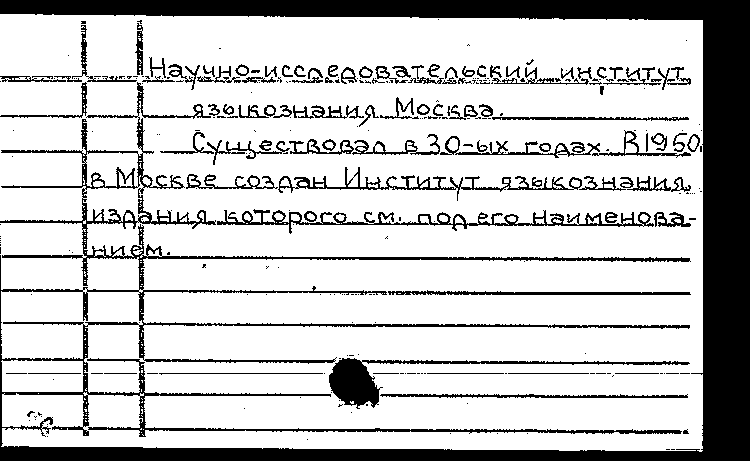 Научно-исследовательский институт
языкознания, Москва.
Существовал в 30-ых годах. В 1950,
в Москве создан Институт языкознания,
издания которого см. под его наименова-
нием.